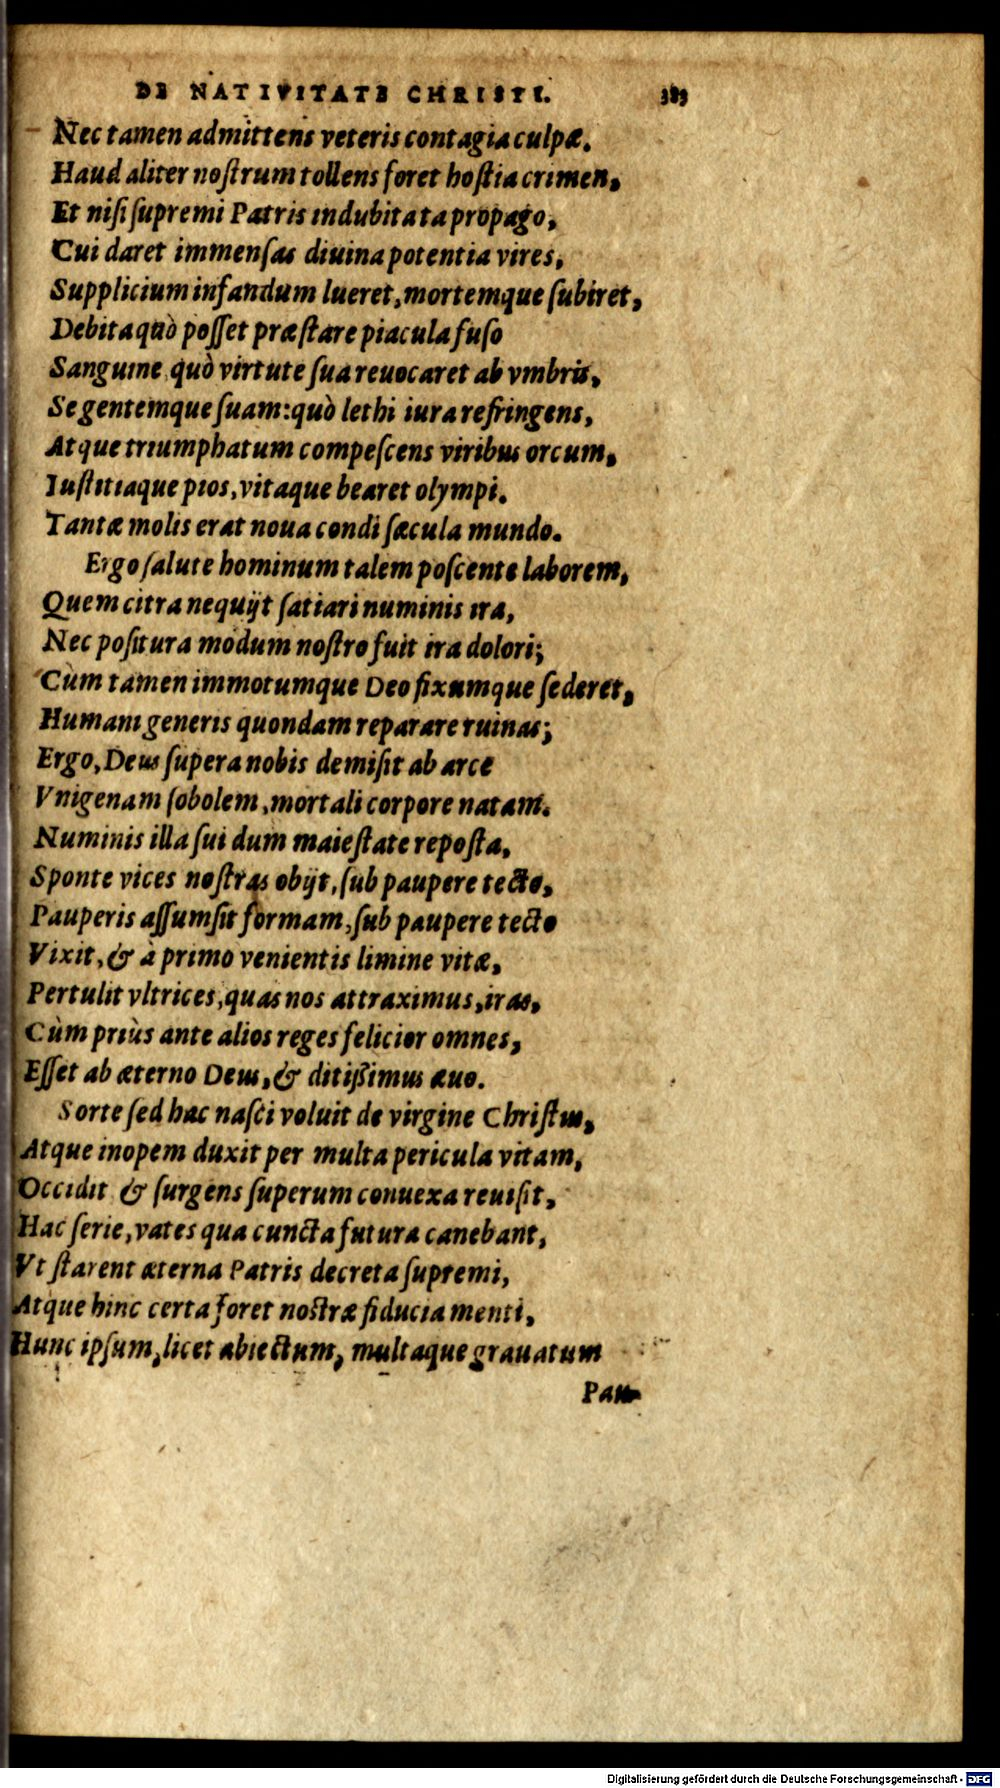 DE NATIVITATE CHRISTI. 383
Nec tamen admittens veteris contagia culpæ.
Haud aliter noſtrum tollens foret hoſtia crimen,
Et niſi ſupremi Patris indubitata propago,
Cui daret immenſas diuina potentia vires,
Supplicium infandum lueret, mortemque ſubiret,
Debita quò poſſet præſtare piacula fuſo
Sanguine quò virtute ſua reuocaret ab vmbris,
Se gentemque ſuam: quò lethi iura refringens,
Atque triumphatum compeſcens viribus orcum,
Iuſtitiaque pios, vitaque bearet olympi.
Tantæ molis erat noua condi ſæcula mundo.
Ergo ſalute hominum talem poſcente laborem,
Quem citra nequijt ſatiari numinis ira,
Nec poſitura modum noſtro fuit ira dolori;
Cùm tamen immotumque Deo fixumque ſederet,
Humani generis quondam reparare ruinas;
Ergo, Deus ſupera nobis demiſit ab arce
Vnigenam ſobolem, mortali corpore natam.
Numinis illa ſui dum maieſtate repoſta,
Sponte vices noſtras obijt, ſub paupere tecto,
Pauperis aſſumſit formam, ſub paupere tecto
Vixit, & à primo venientis limine vitæ,
Pertulit vltrices, quas nos attraximus, iras,
Cùm priùs ante alios reges felicior omnes,
Eſſet ab æterno Deus, & ditißimus æuo.
Sorte ſed hac naſci voluit de virgine Chriſtus,
Atque inopem duxit per multa pericula vitam,
Occidit & ſurgens ſuperum conuexa reuiſit,
Hac ſerie, vates qua cuncta futura canebant,
Vt ſtarent æterna Patris decreta ſupremi,
Atque hinc certa foret noſtræ fiducia menti,
Hunc ipſum, licet abiectum, multaque grauatum
Pau-
Digitalisierung gefördert durch die Deutsche Forschungsgemeinschaft - DFG